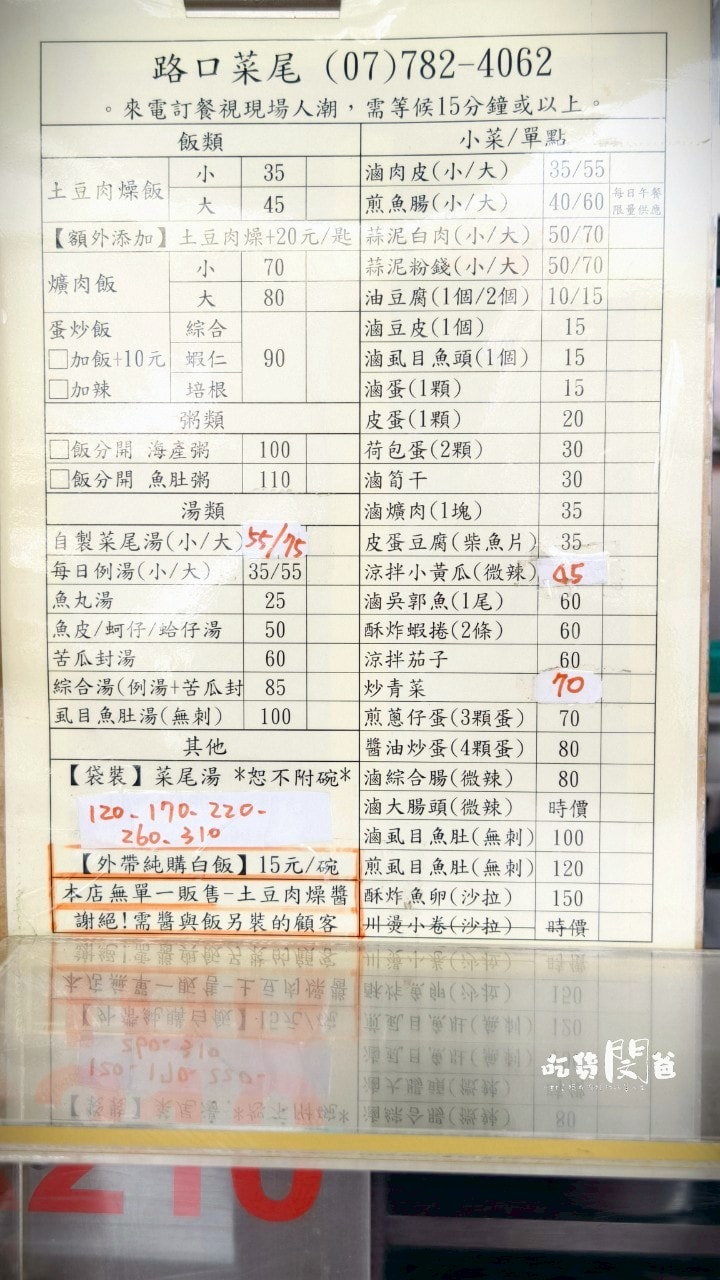 路口菜尾 (07)782-4062
。來電訂餐視現場人潮，需等候15分鐘或以上。
飯類
土豆肉燥飯 小 35
大 45
【額外添加】土豆肉燥+20元/匙
爌肉飯 小 70
大 80
蛋炒飯 綜合
□加飯+10元 蝦仁 90
□加辣 培根
粥類
□飯分開 海產粥 100
□飯分開 魚肚粥 110
湯類
自製菜尾湯(小/大) 55/75
每日例湯(小/大) 35/55
魚丸湯 25
魚皮/蚵仔/蛤仔湯 50
苦瓜封湯 60
綜合湯(例湯+苦瓜封 85
虱目魚肚湯(無刺) 100
其他
【袋裝】菜尾湯 *恕不附碗*
120、170、220、
260、310
【外帶純購白飯】15元/碗
本店無單一販售-土豆肉燥醬
謝絕!需醬與飯另裝的顧客
小菜/單點
滷肉皮(小/大) 35/55
煎魚腸(小/大) 40/60 每日午餐
限量供應
蒜泥白肉(小/大) 50/70
蒜泥粉錢(小/大) 50/70
油豆腐(1個/2個) 10/15
滷豆皮(1個) 15
滷虱目魚頭(1個) 15
滷蛋(1顆) 15
皮蛋(1顆) 20
荷包蛋(2顆) 30
滷筍干 30
滷爌肉(1塊) 35
皮蛋豆腐(柴魚片) 35
涼拌小黃瓜(微辣) 45
滷吳郭魚(1尾) 60
酥炸蝦捲(2條) 60
涼拌茄子 60
炒青菜 70
煎蔥仔蛋(3顆蛋) 70
醬油炒蛋(4顆蛋) 80
滷綜合腸(微辣) 80
滷大腸頭(微辣) 時價
滷虱目魚肚(無刺) 100
煎虱目魚肚(無刺) 120
酥炸魚卵(沙拉) 150
川燙小卷(沙拉) 時價
吃貨閔爸
210